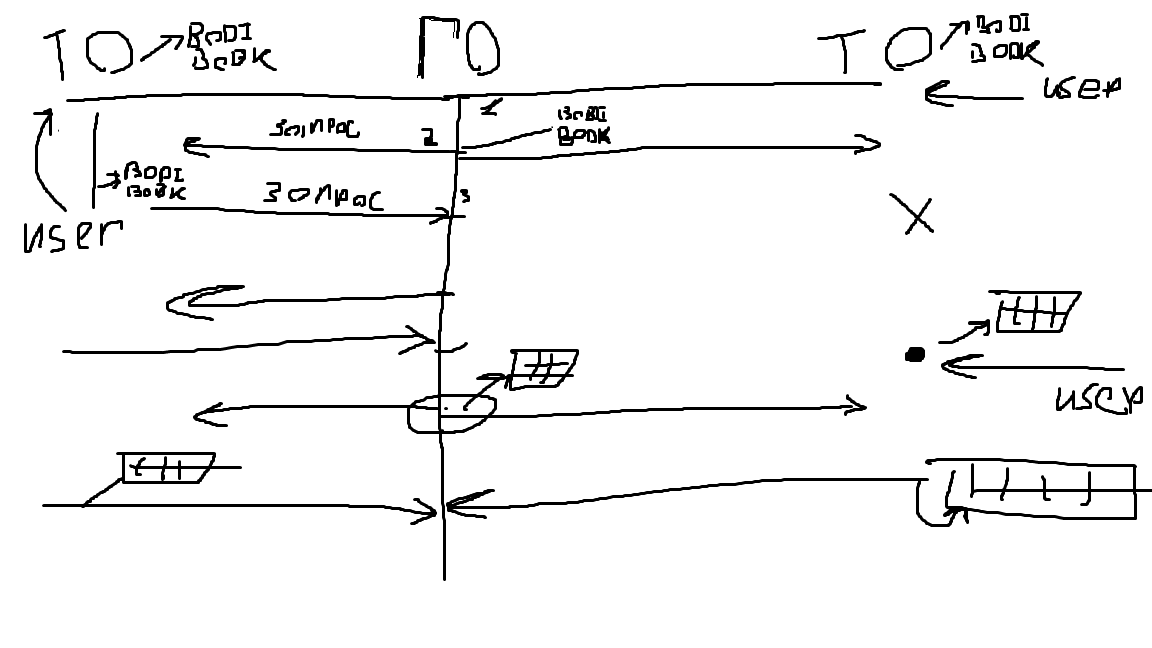 ТО
BODI
BOOK
ПО
ТО
BODI
BOOK
user
1
запрос
2
BODI
BOOK
BODI
BOOK
запрос
3
user
X
user